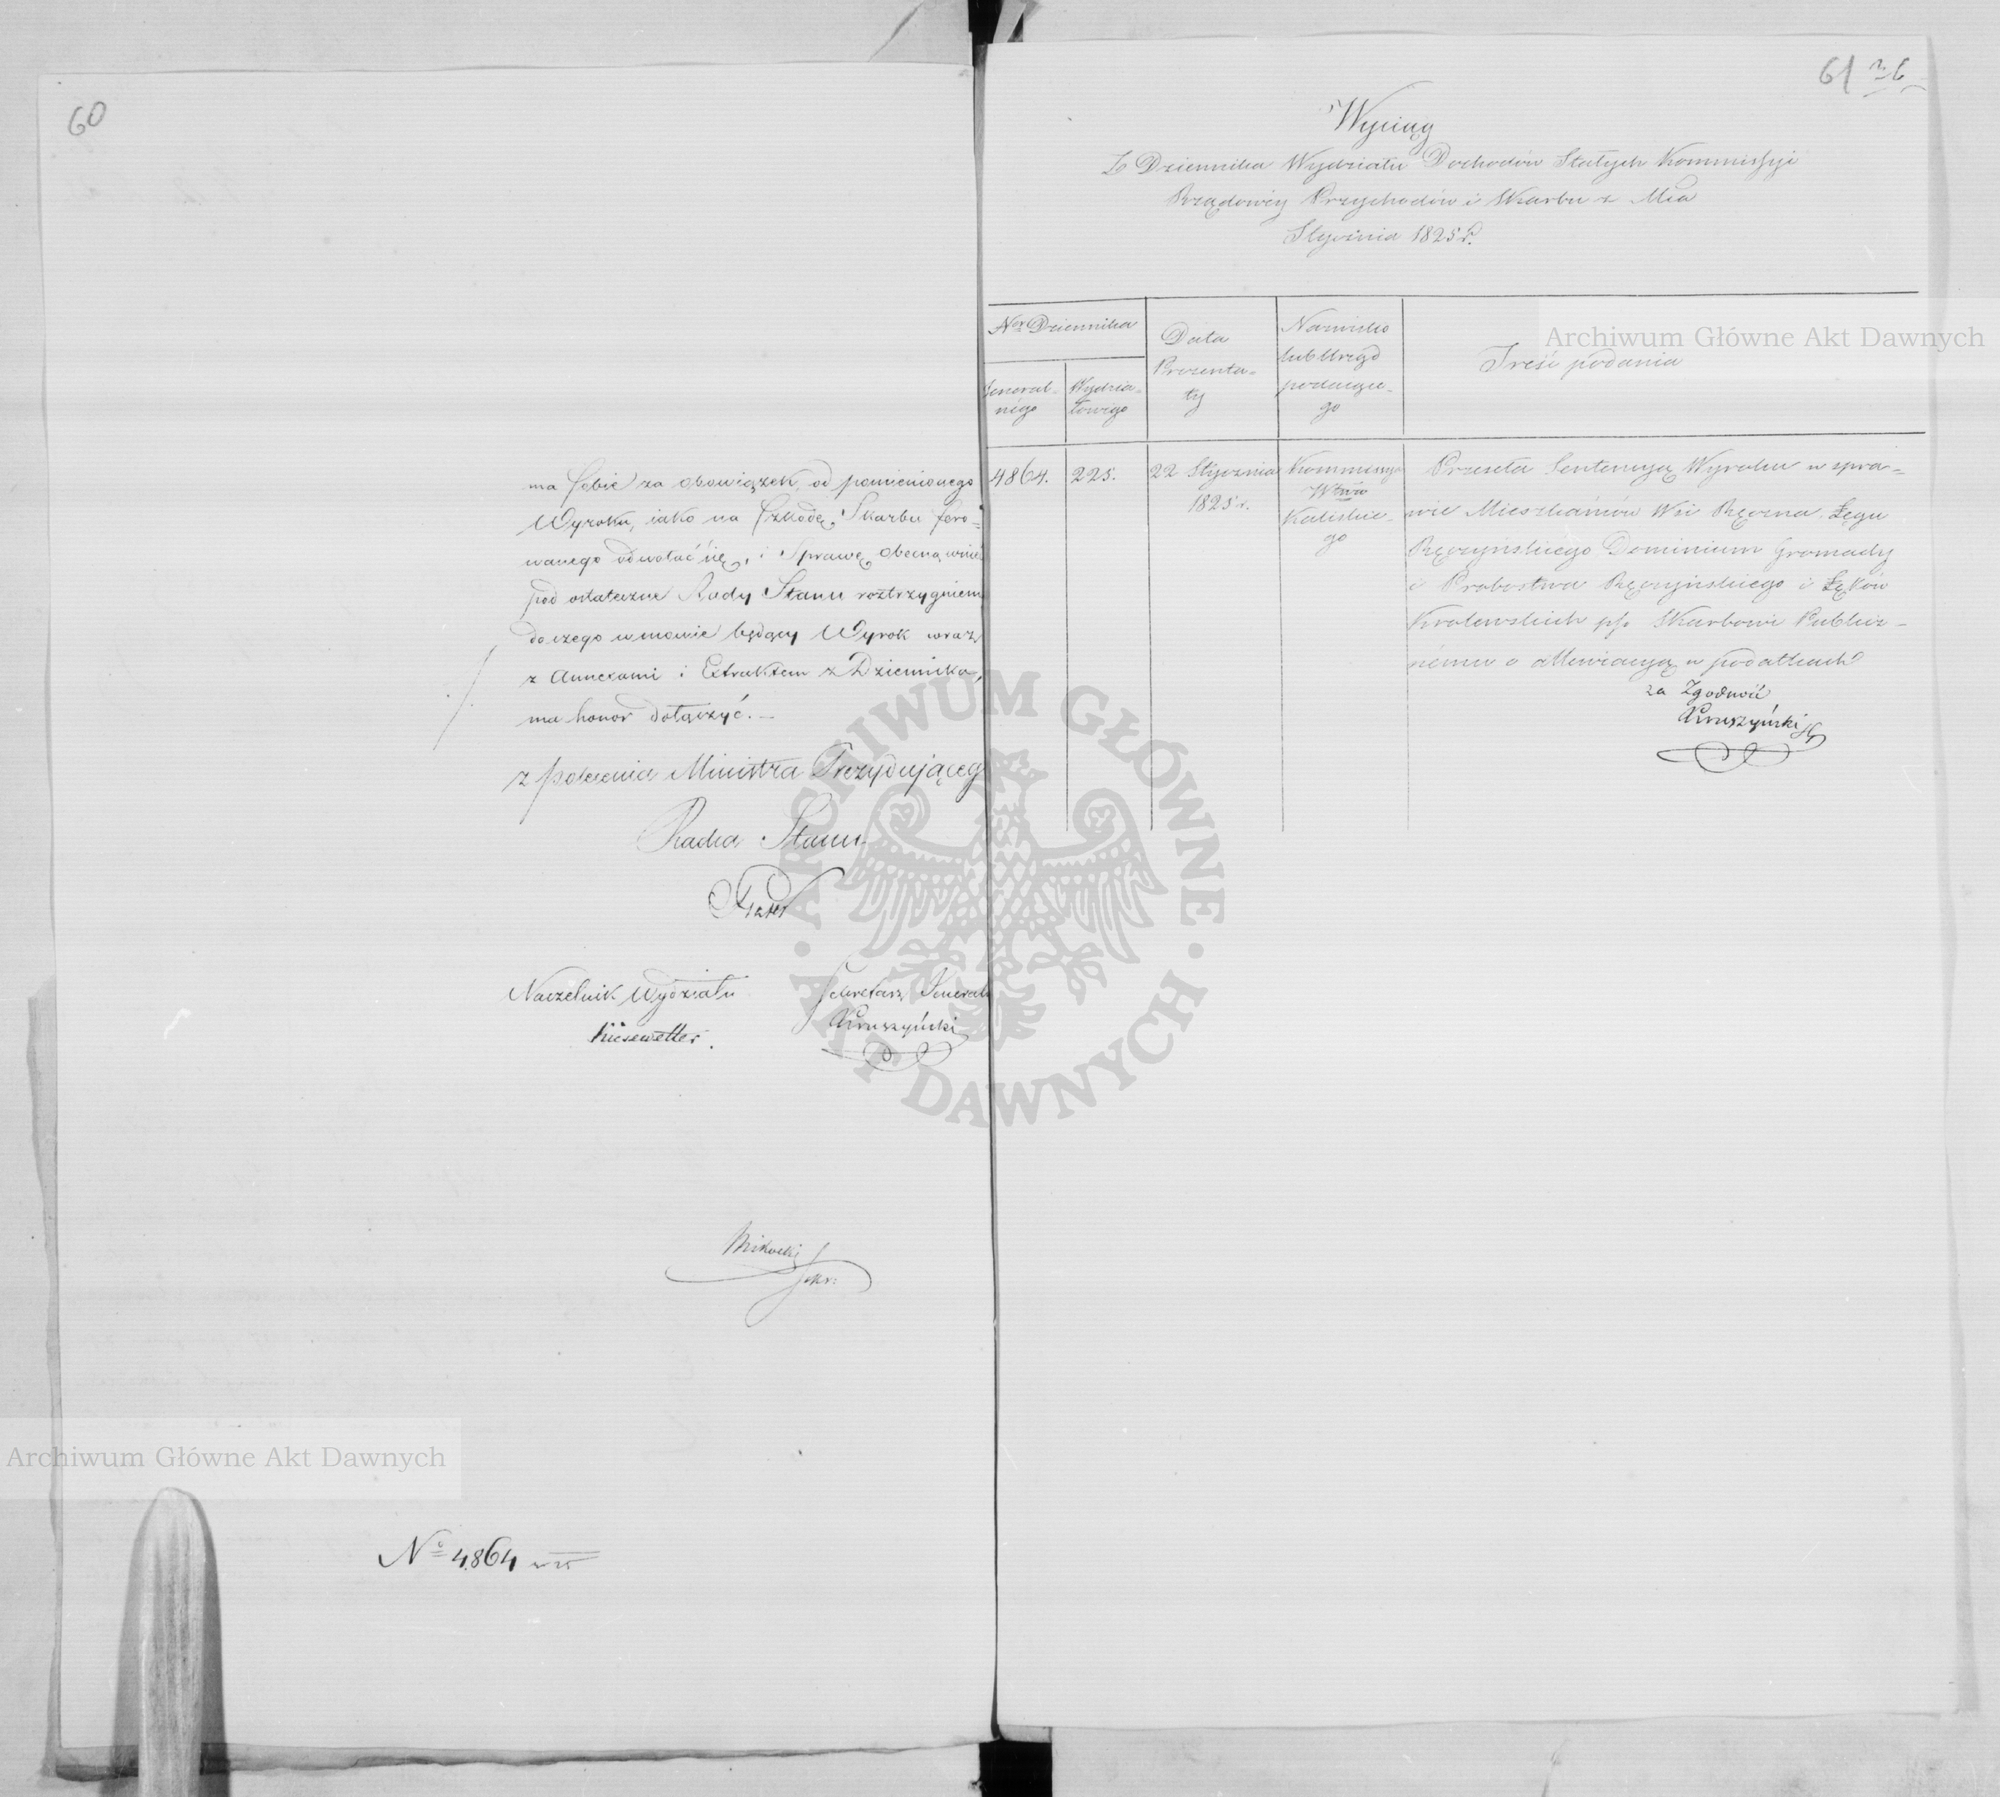 60
ma sobie za obowiązek, od pomienionego
Wyroku, iako na szkodę Skarbu fero-
wanego odwołać się, i Sprawę obecną wnieść
pod ostateczne Rady Stanu roztrzygnienie
do czego w mowie będący Wyrok wraz
z Annexami i Extraktem z Dziennika,
ma honor dołączyć. —
z polecenia Ministra Prezydującego
Radca Stanu
Naczelnik Wydziału
Kiesewetter.
Sekretarz Jeneralny
Kruszyński
Sekr:
No 4864
61
Wyciąg
Z Dziennika Wydziału Dochodów Stałych Kommissyi
Rządowey Przychodów i Skarbu z Mca
Stycznia 1825 r.
Nor Dziennika
Jeneral-
nego
Wydzia-
łowego
Data
Prezenta-
ty
Nazwisko
lub Urzęd
podaiące-
go
Treść podania
4864.
225.
22 Stycznia
1825 r.
Kommissya
Wdztwa
Kaliskie-
go
Przesyła Sentencyą Wyroku w spra-
wie Mieszkańców Wsi Ręczna Łęgu
Ręczyńskiego Dominium Gromady
i Probostwa Ręczyńskiego i Łęków
Krolewskich pko Skarbowi Publicz-
nemu o allewiacyą w podatkach
za Zgodność
Kruszyński
Archiwum Główne Akt Dawnych
ARCHIWUM GŁÓWNE AKT DAWNYCH
Archiwum Główne Akt Dawnych